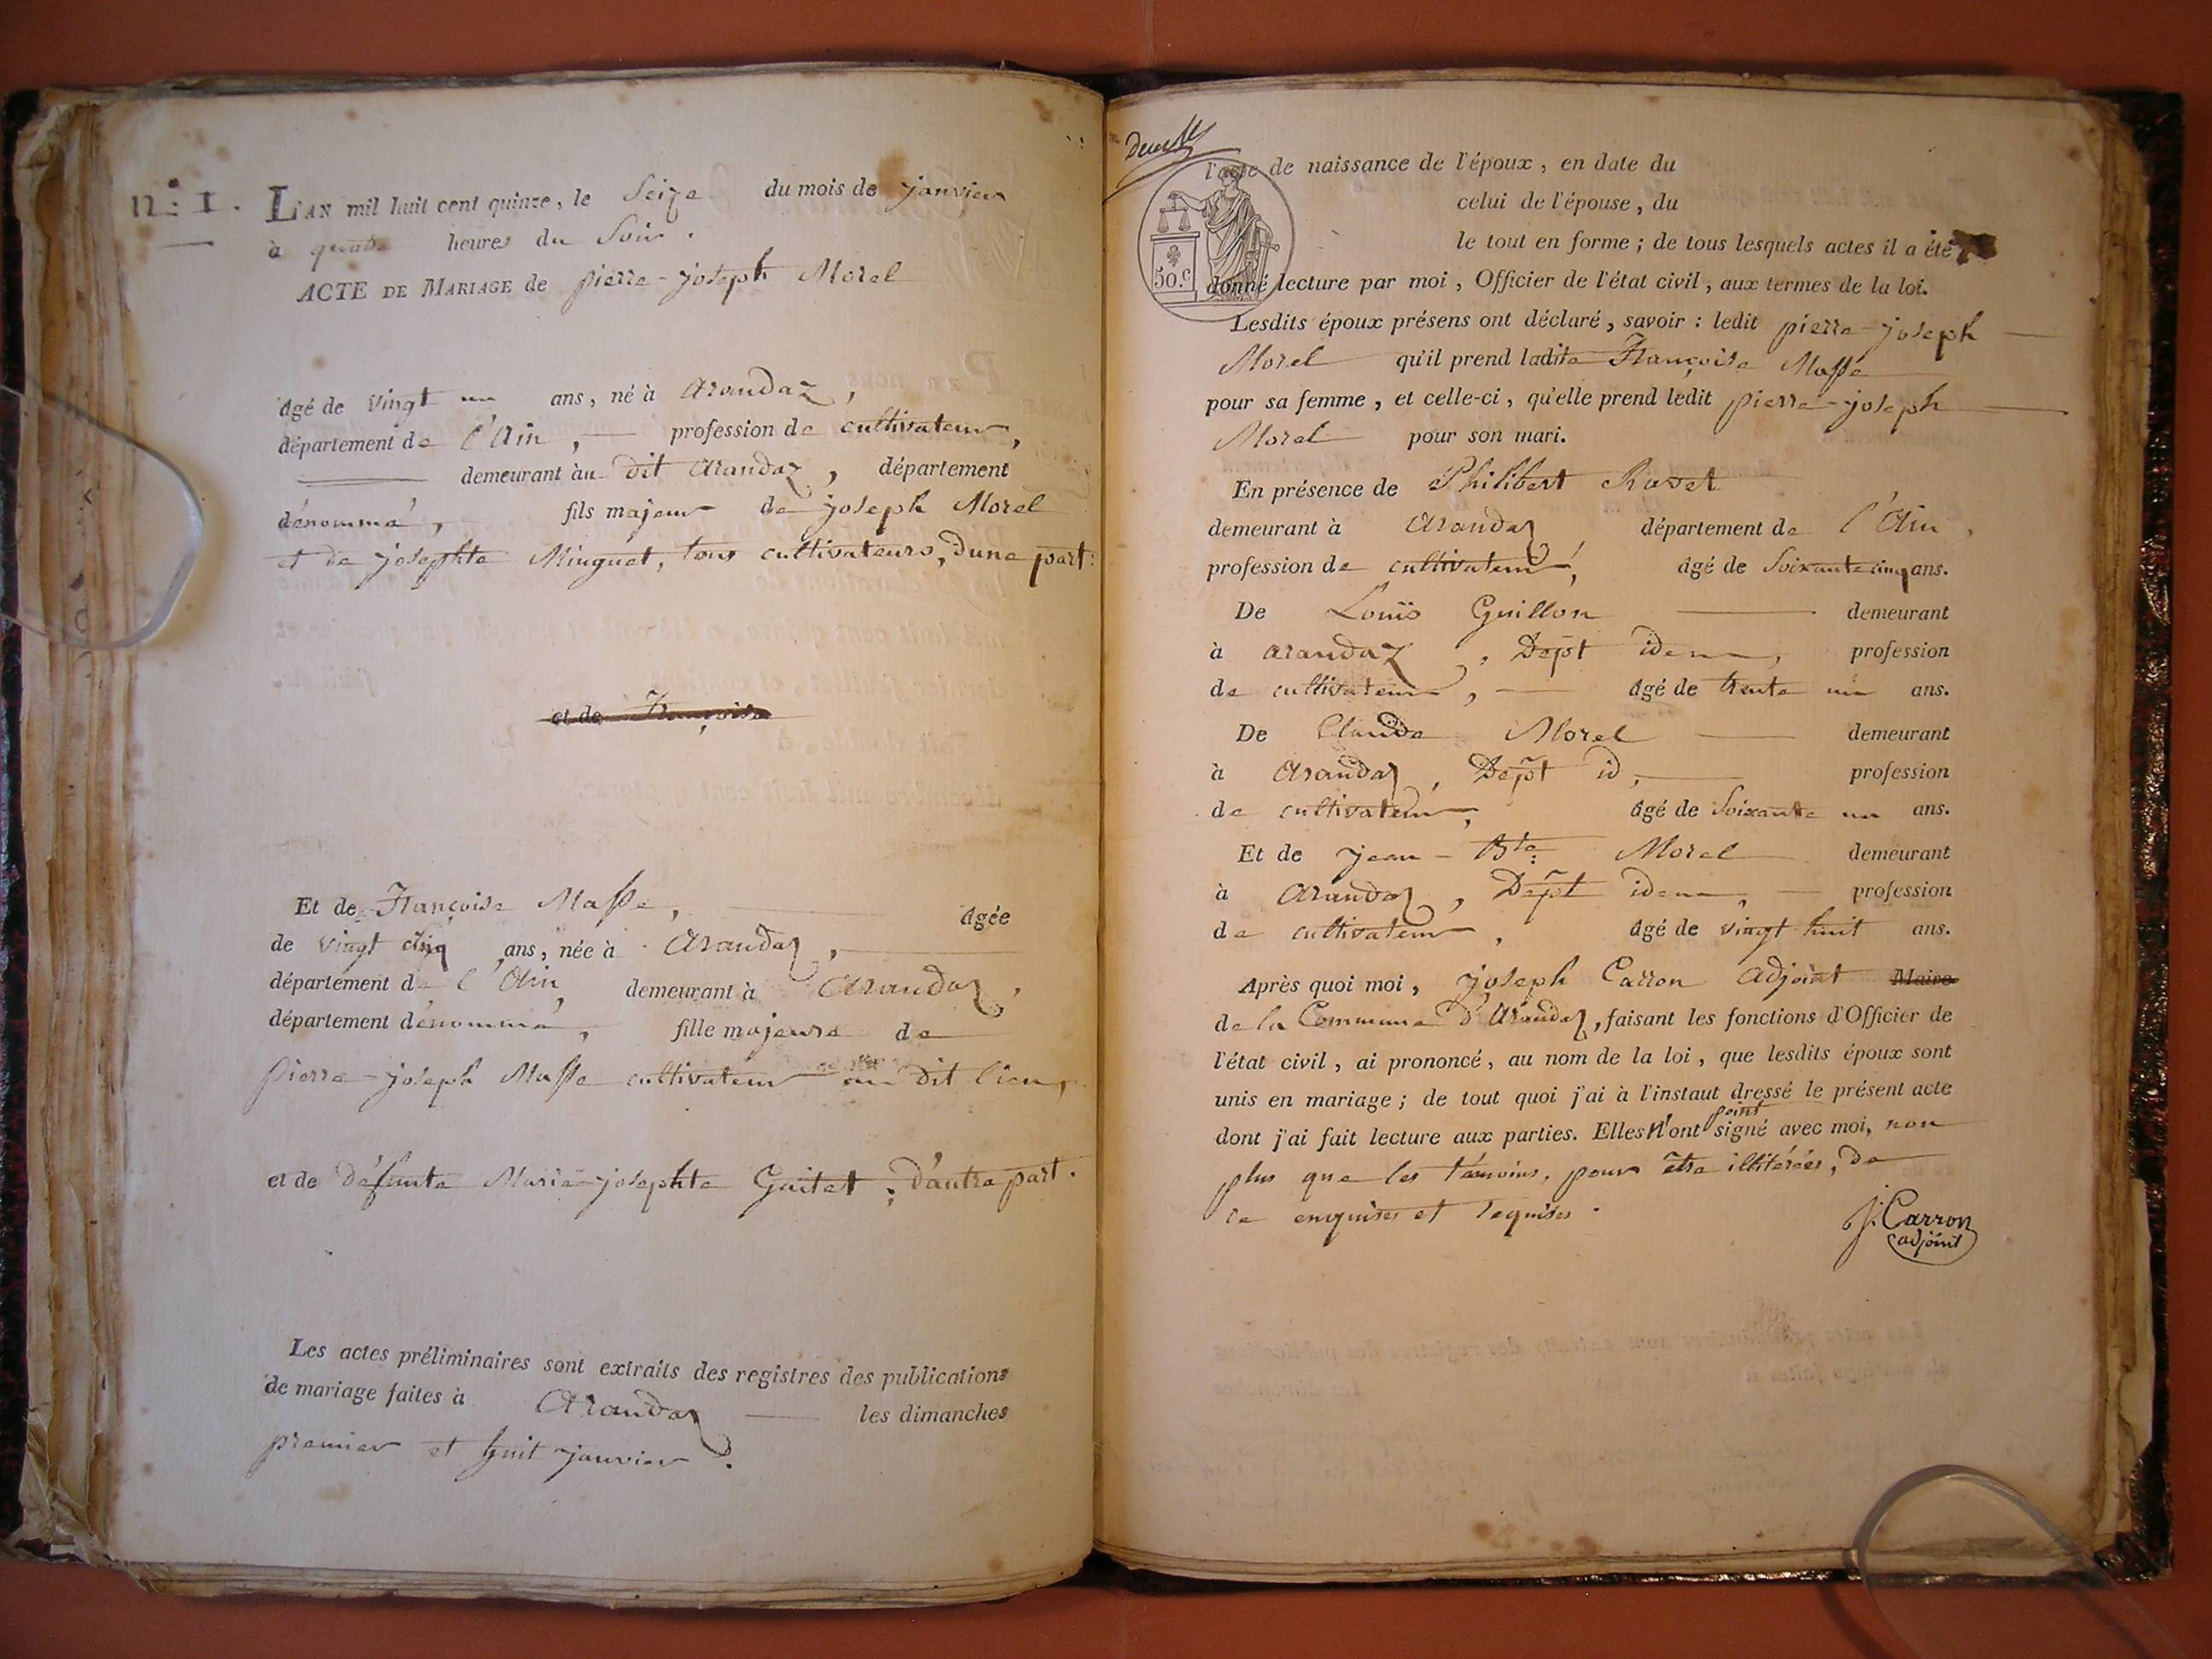 N.° 1.
L'AN mil huit cent quinze, le Seize du mois de janvier
à quatre heures du Soir.
ACTE DE MARIAGE de pierre-joseph Morel
âgé de vingt un ans, né à Arandaz,
département de l'Ain, profession de cultivateur,
demeurant au dit Arandaz, département
dénommé, fils majeur de joseph Morel
et de josephte Minguet, tous cultivateurs, d'une part:
et de Françoise
Et de Françoise Masse, âgée
de vingt cinq ans, née à Arandaz,
département de l'Ain, demeurant à Arandaz,
département dénommé, fille majeure de
pierre-joseph Masse cultivateur au dit lieu,
et de défunte Marie-josephte Guitet, d'autre part.
Les actes préliminaires sont extraits des registres des publications
de mariage faites à Arandaz les dimanches
premier et huit janvier.
l'acte de naissance de l'époux, en date du
celui de l'épouse, du
le tout en forme; de tous lesquels actes il a été
50.c
donné lecture par moi, Officier de l'état civil, aux termes de la loi.
Lesdits époux présens ont déclaré, savoir: ledit pierre-joseph
Morel qu'il prend ladite Françoise Masse
pour sa femme, et celle-ci, qu'elle prend ledit pierre-joseph
Morel pour son mari.
En présence de Philibert Ravet
demeurant à Arandaz, département de l'Ain,
profession de cultivateur, âgé de Soixante cinq ans.
De Louis Guillon demeurant
à arandaz, Dept idem, profession
de cultivateur, âgé de trente un ans.
De Claude Morel demeurant
à Arandaz, Dept id, profession
de cultivateur, âgé de Soixante un ans.
Et de jean-Bte Morel demeurant
à Arandaz, Dept idem, profession
de cultivateur, âgé de vingt huit ans.
Après quoi moi, joseph Carron Adjoint Maire
de la Commune d'Arandaz, faisant les fonctions d'Officier de
l'état civil, ai prononcé, au nom de la loi, que lesdits époux sont
unis en mariage; de tout quoi j'ai à l'instaut dressé le présent acte
dont j'ai fait lecture aux parties. Elles n'ont point signé avec moi, non
plus que les témoins, pour être illitérées, de
ce enquises et requises.
J. Carron
adjoint